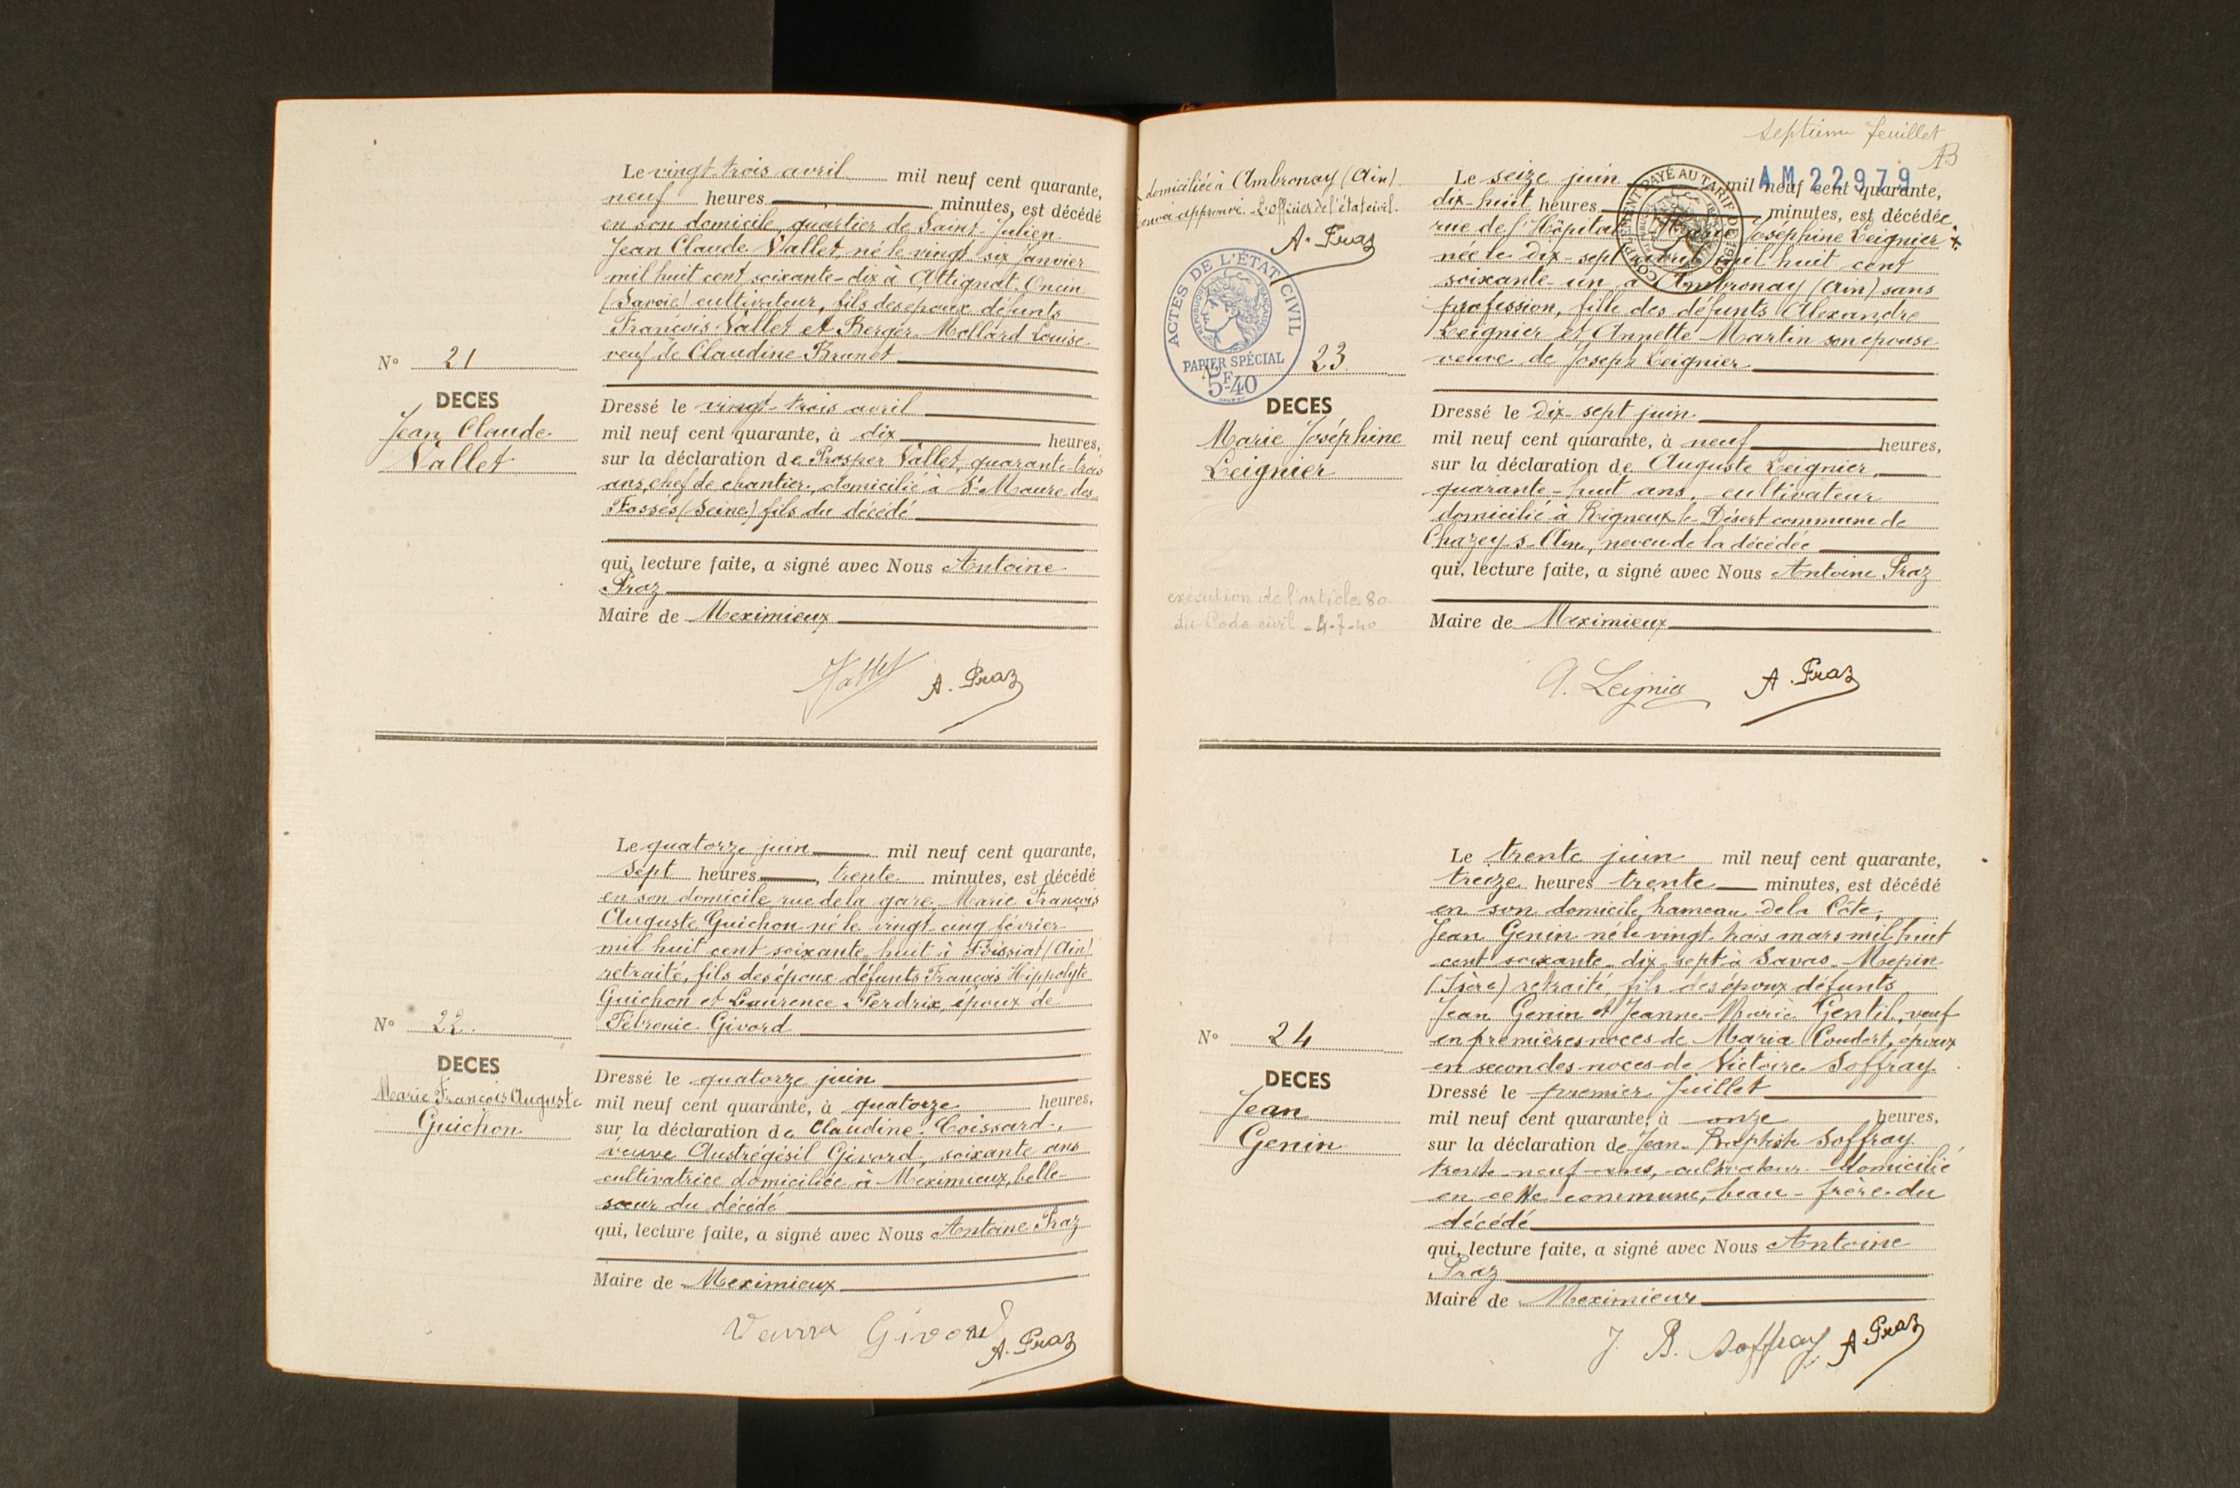 Le vingt-trois avril mil neuf cent quarante,
neuf heures , minutes, est décédé
en son domicile, quartier de Saint-Julien
Jean Claude Vallet, né le vingt six Janvier
mil huit cent soixante-dix à Attignat-Oncin
(Savoie) cultivateur, fils des epoux défunts
François Vallet et Berger-Mollard Louise
veuf de Claudine Brunet
N° 21
DECES
Jean Claude
Vallet
Dressé le vingt-trois avril
mil neuf cent quarante, à dix heures,
sur la déclaration de Prosper Vallet, quarante-trois
ans, chef de chantier, domicilié à St Maure des
Fossés (Seine) fils du décédé
qui, lecture faite, a signé avec Nous Antoine
Praz
Maire de Meximieux
Vallet A. Praz
Le quatorze juin mil neuf cent quarante,
sept heures , trente minutes, est décédé
en son domicile, rue de la gare, Marie François
Auguste Guichon né le vingt-cinq février
mil huit cent soixante huit à Foissiat (Ain)
retraité, fils des époux défunts François Hippolyte
Guichon et Laurence Perdrix, époux de
Fébronie Givord
N° 22.
DECES
Marie François Auguste
Guichon
Dressé le quatorze juin
mil neuf cent quarante, à quatorze heures,
sur la déclaration de Claudine Coissard,
veuve Austrégésil Givord, soixante ans
cultivatrice domiciliée à Meximieux, belle-
sœur du décédé
qui, lecture faite, a signé avec Nous Antoine Praz
Maire de Meximieux
Givord
A. Praz
septième feuillet
AB
AM 22979
domiciliée à Ambronay (Ain).
envoi approuvé. L'officier de l'état civil.
A. Praz
ACTES DE L'ÉTAT CIVIL
PAPIER SPÉCIAL
5F40
COMPLÉMENT PAYÉ AU TARIF DE 1939
Le seize juin mil neuf cent quarante,
dix-huit heures minutes, est décédée
rue de l'Hôpital Marie Joséphine Leignier x
née le dix-sept avril mil huit cent
soixante-un à Ambronay (Ain) sans
profession, fille des défunts Alexandre
Leignier et Annette Martin son épouse
veuve de Joseph Leignier
23
DECES
Marie Joséphine
Leignier
Dressé le dix-sept juin
mil neuf cent quarante, à neuf heures,
sur la déclaration de Auguste Leignier,
quarante-huit ans, cultivateur
domicilié à Rigneux-le-Désert commune de
Chazey s. Ain, neveu de la décédée
qui, lecture faite, a signé avec Nous Antoine Praz
exécution de l'article 80
du Code civil - 4-7-40
Maire de Meximieux
A. Leignier A. Praz
Le trente juin mil neuf cent quarante,
treize heures trente minutes, est décédé
en son domicile, hameau de la Côte,
Jean Genin né le vingt trois mars mil huit
cent soixante-dix-sept à Savas-Mepin
(Isère) retraité, fils des époux défunts
Jean Genin et Jeanne-Marie Gentil, veuf
en premières noces de Maria Coudert, époux
en secondes noces de Victoire Soffray
N° 24
DECES
Jean
Genin
Dressé le premier Juillet
mil neuf cent quarante, à onze heures,
sur la déclaration de Jean-Baptiste Soffray
trente-neuf ans, cultivateur domicilié
en cette commune, beau-frère du
décédé
qui, lecture faite, a signé avec Nous Antoine
Praz
Maire de Meximieux
J. B. Soffray A. Praz